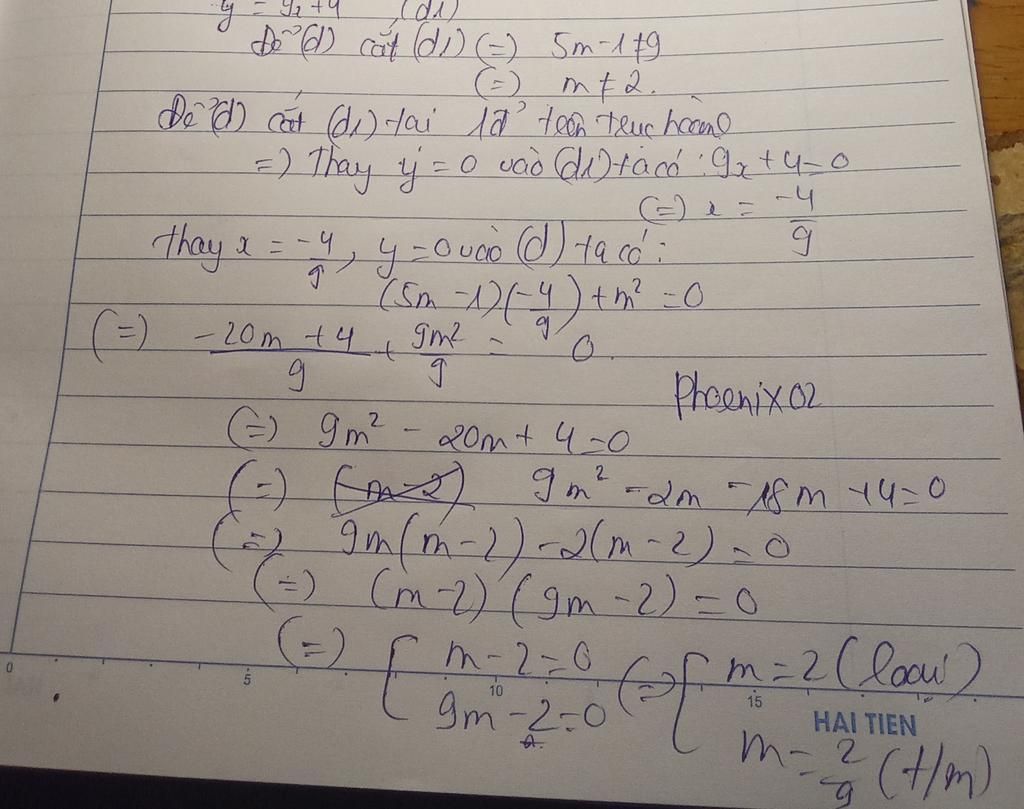 y = 9x+4 (d1)
Để (d) cắt (d1) (=) 5m-1≠9
(=) m ≠ 2.
Để (d) cắt (d1) tại 1đ' trên trục hoành
=) Thay y = 0 vào (d1) ta có : 9x + 4 = 0
(=) x = -4/9
thay x = -4/9, y = 0 vào (d) ta có :
(5m -1)(-4/9) + m² = 0
(=) -20m + 4/9 + 9m²/9 = 0.
Phoenix02
(=) 9m² - 20m + 4 = 0
(=) (m-2) 9m² -2m -18m +4 = 0
(=) 9m(m-2) -2(m-2) = 0
(=) (m-2) (9m-2) = 0
(=) [ m-2 = 0 (=) [ m = 2 (loại)
9m-2 = 0 m = 2/9 (t/m)
0 5 10 15
HAI TIEN